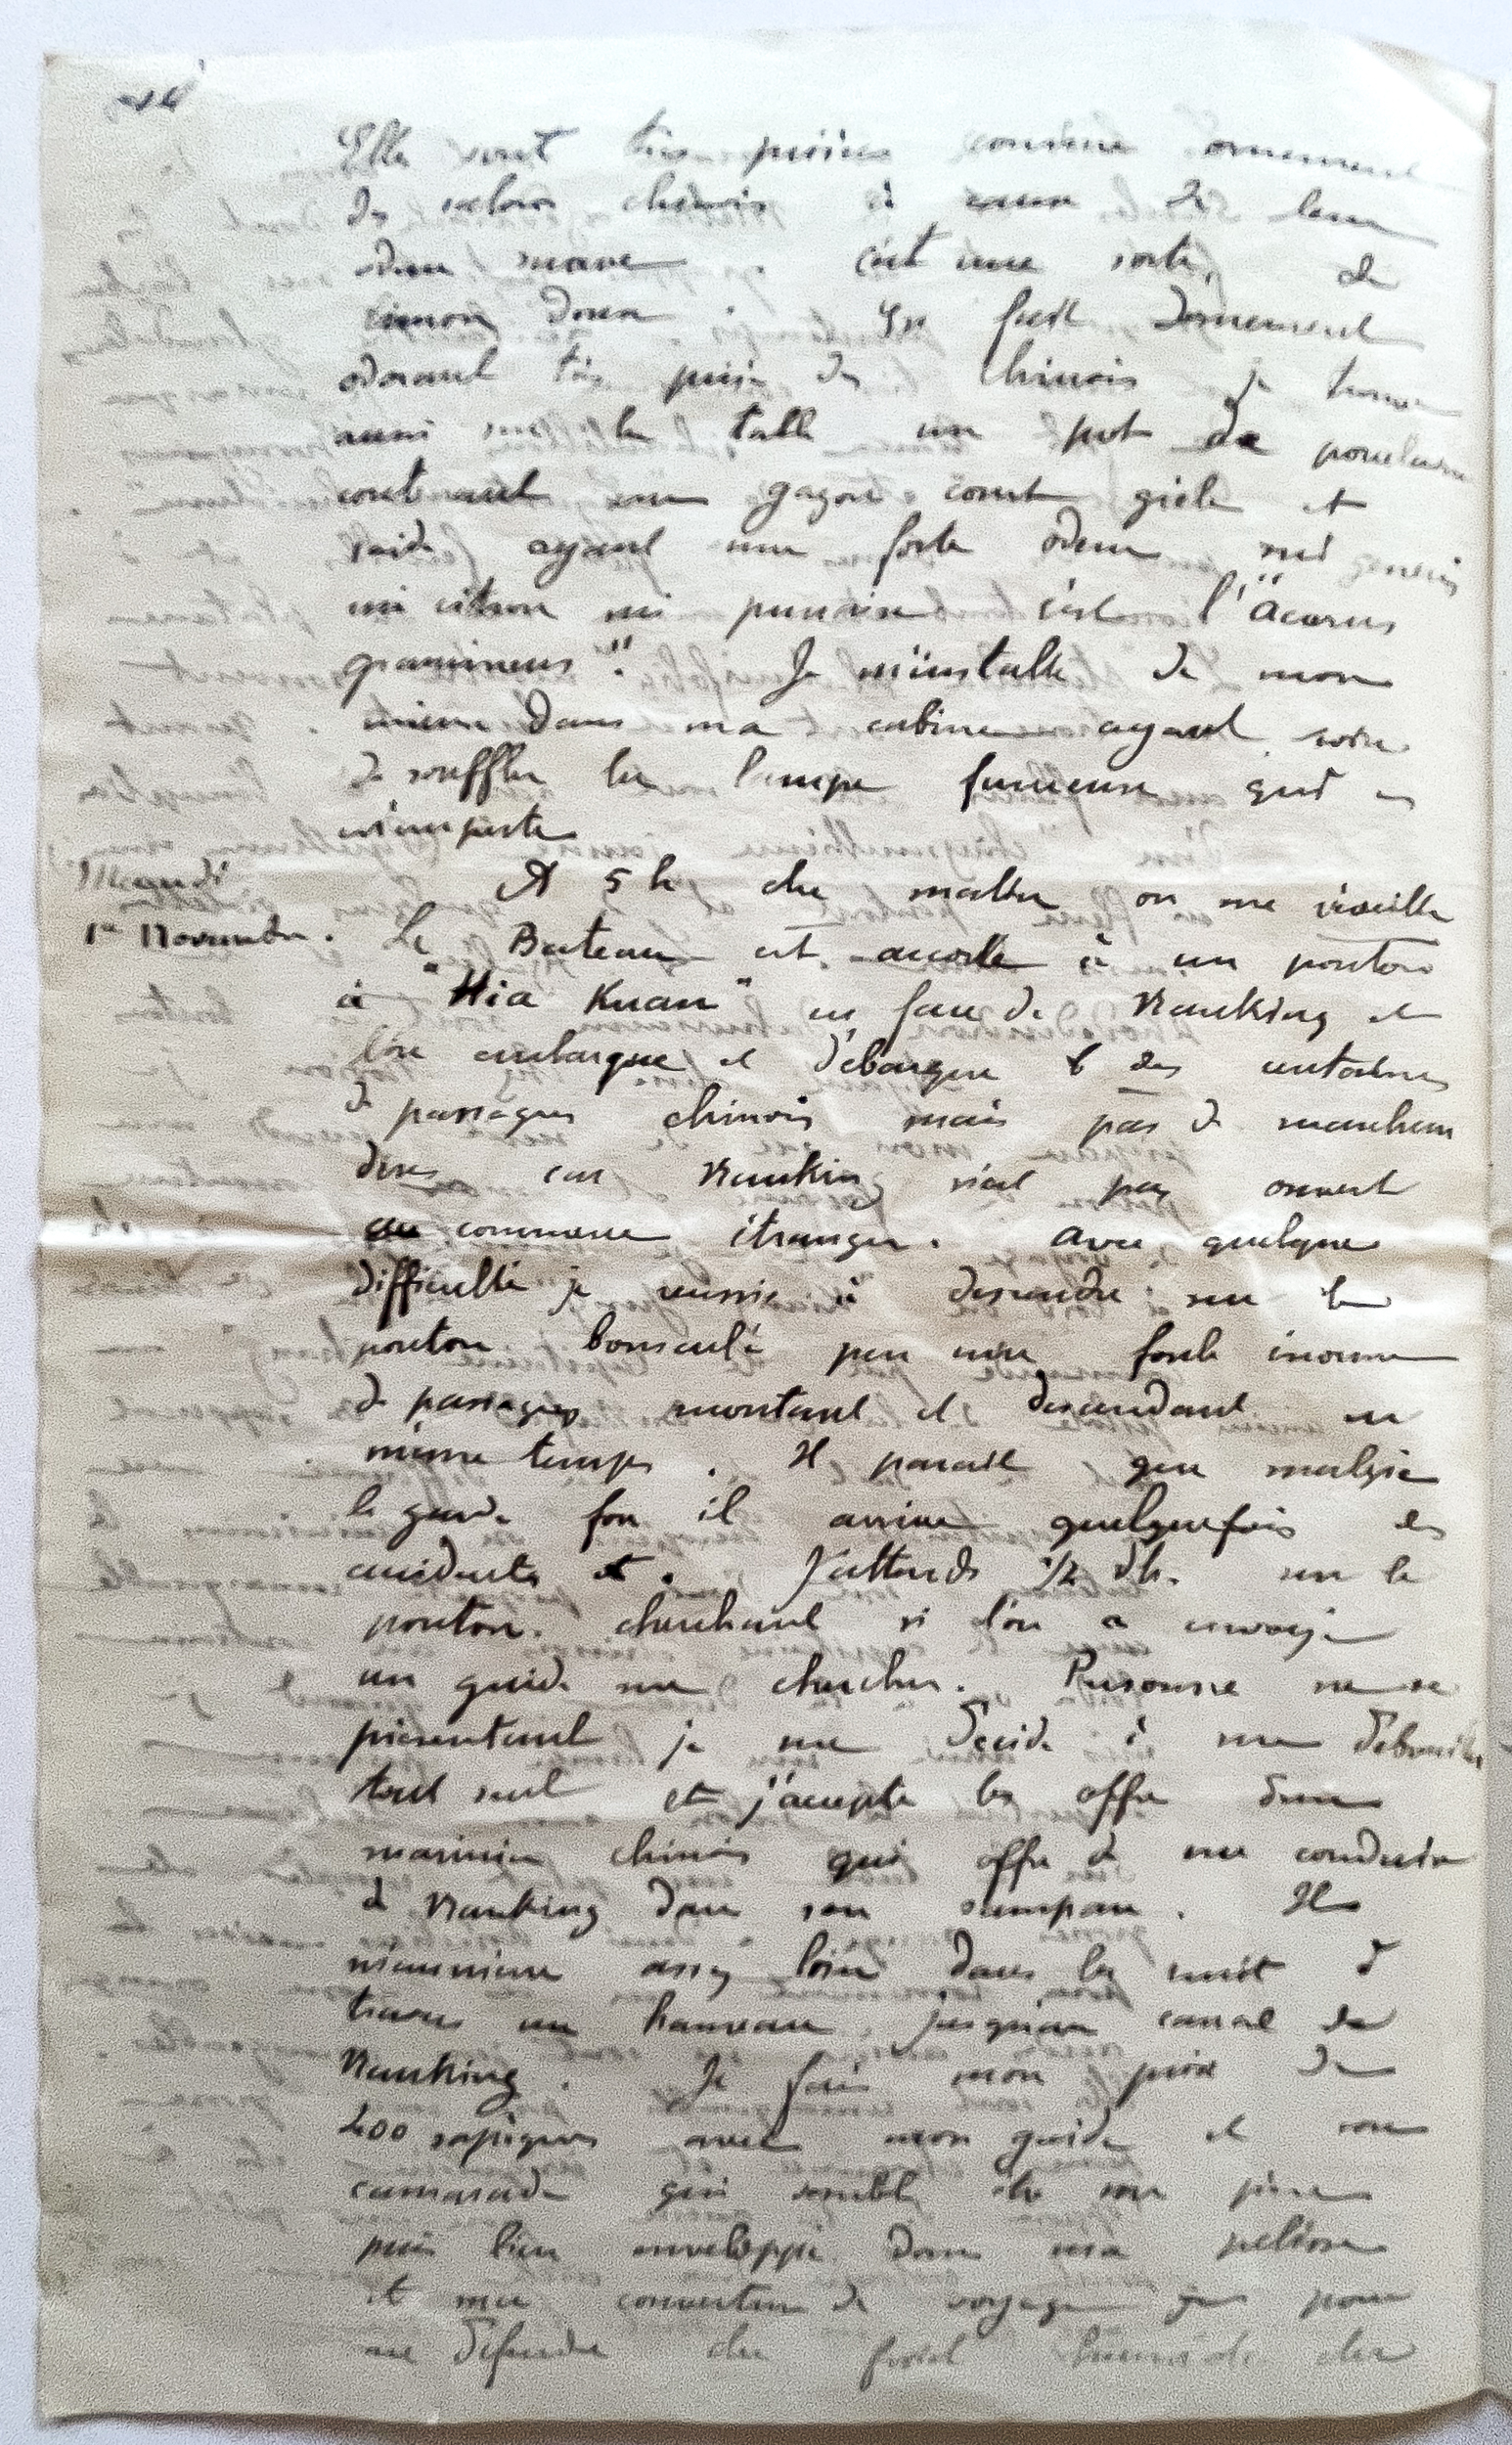 Elles sont très prisées comme ornement
des salons chinois à cause de leur
odeur suave. C'est une sorte de
limon doux. En fait d'ornement
odorant très prisé des Chinois je trouve
aussi sur la table un pot de porcelaine
contenant un gazon court grêle et
raide ayant une forte odeur sui generis
mi citron mi punaise c'est l'"Acorus
gramineus". Je m'installe de mon
mieux dans ma cabine ayant soin
de souffler la lampe fumeuse qui
m'empeste
Mardi
1er Novembre.
A 5 h du matin on me réveille
Le Bateau est accosté à un ponton
à "Hia Kuan" en face de Nanking et
l'on embarque et débarque des centaines
de passagers chinois mais pas de marchan
dises car Nanking n'est pas ouvert
au commerce étranger. Avec quelque
difficulté je réussis à descendre sur le
ponton bousculé par une foule énorme
de passagers montant et descendant en
même temps. Il parait que malgré
le garde fou il arrive quelquefois des
accidents. J'attends 1/2 h. sur le
ponton cherchant si l'on a envoyé
un guide me chercher. Personne ne se
présentant je me décide à me débrouiller
tout seul et j'accepte les offres d'un
marinier chinois qui offre de me conduire
à Nanking dans son sampan. Il
m'emmène assez loin dans la nuit à
travers un hameau jusqu'au canal de
Nanking. Je fais mon prix de
400 sapèques avec mon guide et son
camarade qui semble être son père
puis bien enveloppé dans ma pelisse
et ma couverture de voyage pour
me défendre du froid humide du